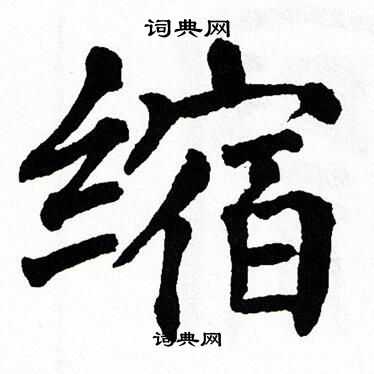 词典网
缩
词典网